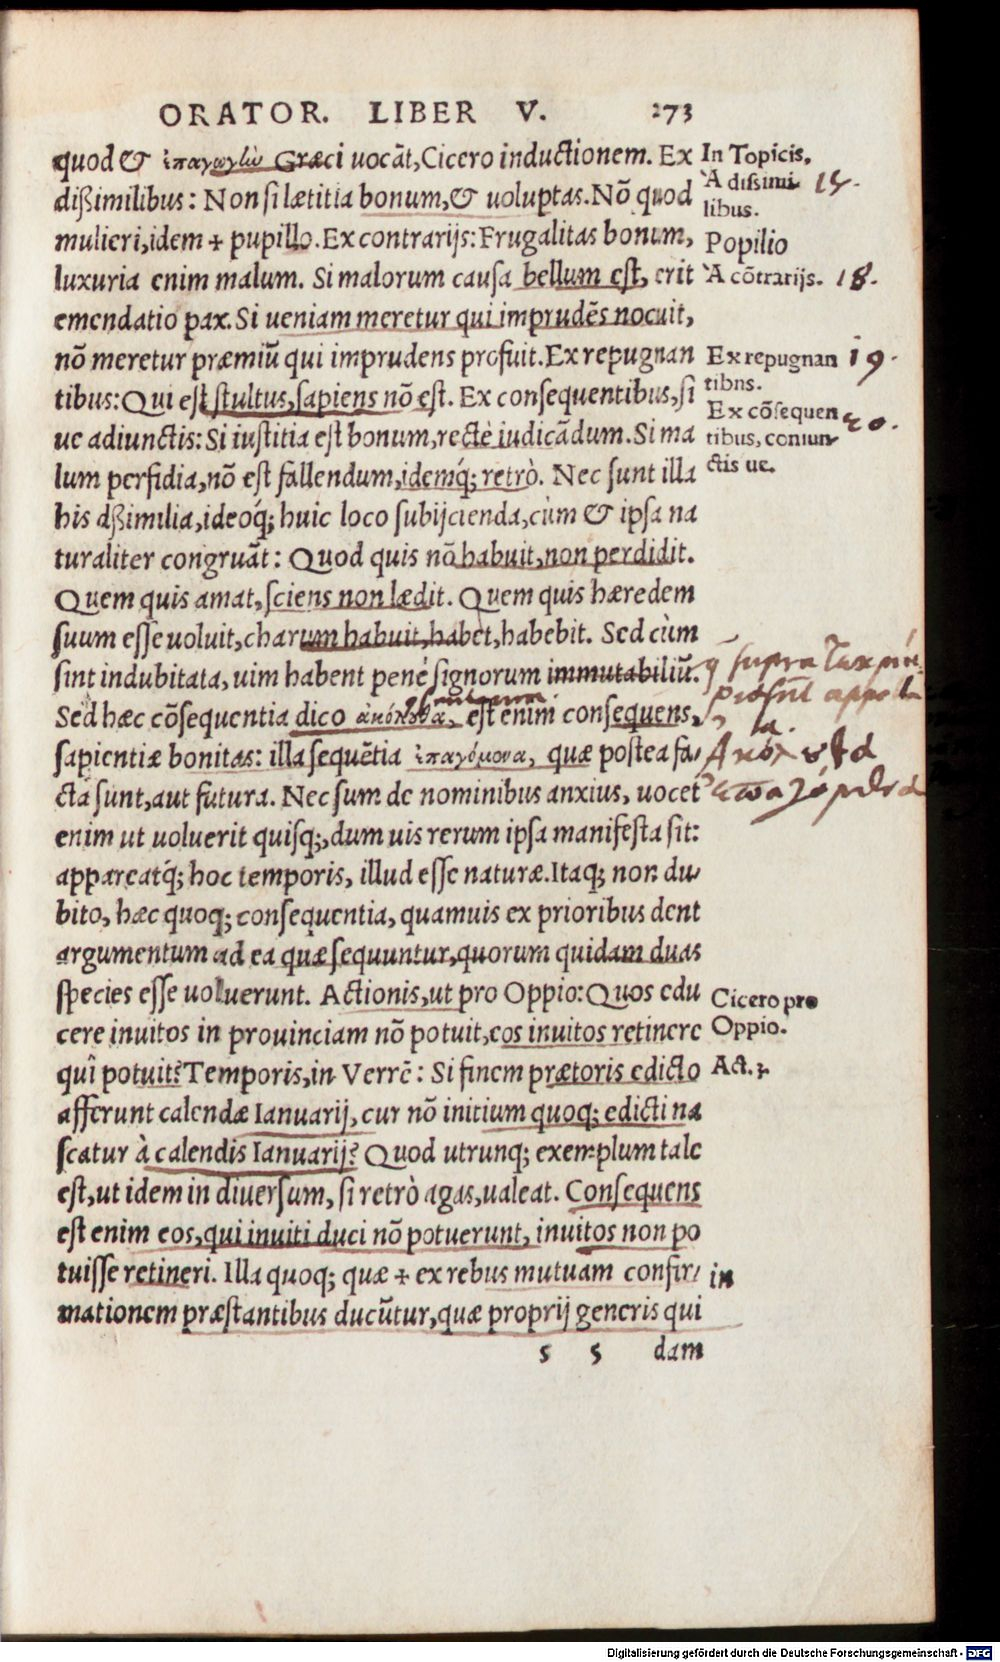 ORATOR. LIBER V. 273
quod & ἐπαγωγὴν Græci uocãt, Cicero inductionem. Ex
In Topicis.
dißimilibus: Non si lætitia bonum, & uoluptas. Nõ quod
A dißimi
libus.
mulieri, idem + pupillo. Ex contrarijs: Frugalitas bonum,
Popilio
luxuria enim malum. Si malorum causa bellum est, erit
A cõtrarijs. 18.
emendatio pax. Si ueniam meretur qui imprudẽs nocuit,
nõ meretur præmiũ qui imprudens profuit. Ex repugnan
Ex repugnan 19.
tibns.
tibus: Qui est stultus, sapiens nõ est. Ex consequentibus, si
Ex cõsequen 20.
ue adiunctis: Si iustitia est bonum, rectè iudicãdum. Si ma
tibus, coniun
lum perfidia, nõ est fallendum, idemq́; retrò. Nec sunt illa
ctis ue.
his dßimilia, ideoq́; huic loco subijcienda, cùm & ipsa na
turaliter congruãt: Quod quis nõ habuit, non perdidit.
Quem quis amat, sciens non lædit. Quem quis hæredem
suum esse uoluit, charum habuit, habet, habebit. Sed cùm
sint indubitata, uim habent penè signorum immutabiliũ.
supra
Sed hæc cõsequentia dico ἀκόλουθα, est enim consequens,
sapientiæ bonitas: illa sequẽtia ἑπαγόμονα, quæ postea fa-
cta sunt, aut futura. Nec sum de nominibus anxius, uocet
enim ut uoluerit quisq;, dum uis rerum ipsa manifesta sit:
appareatq́; hoc temporis, illud esse naturæ. Itaq; non du-
bito, hæc quoq; consequentia, quamuis ex prioribus dent
argumentum ad ea quæ sequuntur, quorum quidam duas
species esse uoluerunt. Actionis, ut pro Oppio: Quos edu
Cicero pro
cere inuitos in prouinciam nõ potuit, eos inuitos retinere
Oppio.
quî potuit? Temporis, in Verrẽ: Si finem prætoris edicto
Act. 3.
afferunt calendæ Ianuarij, cur nõ initium quoq; edicti na
scatur à calendis Ianuarij? Quod utrunq; exemplum tale
est, ut idem in diuersum, si retrò agas, ualeat. Consequens
est enim eos, qui inuiti duci nõ potuerunt, inuitos non po
tuisse retineri. Illa quoq; quæ + ex rebus mutuam confir-
in
mationem præstantibus ducũtur, quæ proprij generis qui
s 5 dam
Digitalisierung gefördert durch die Deutsche Forschungsgemeinschaft - DFG